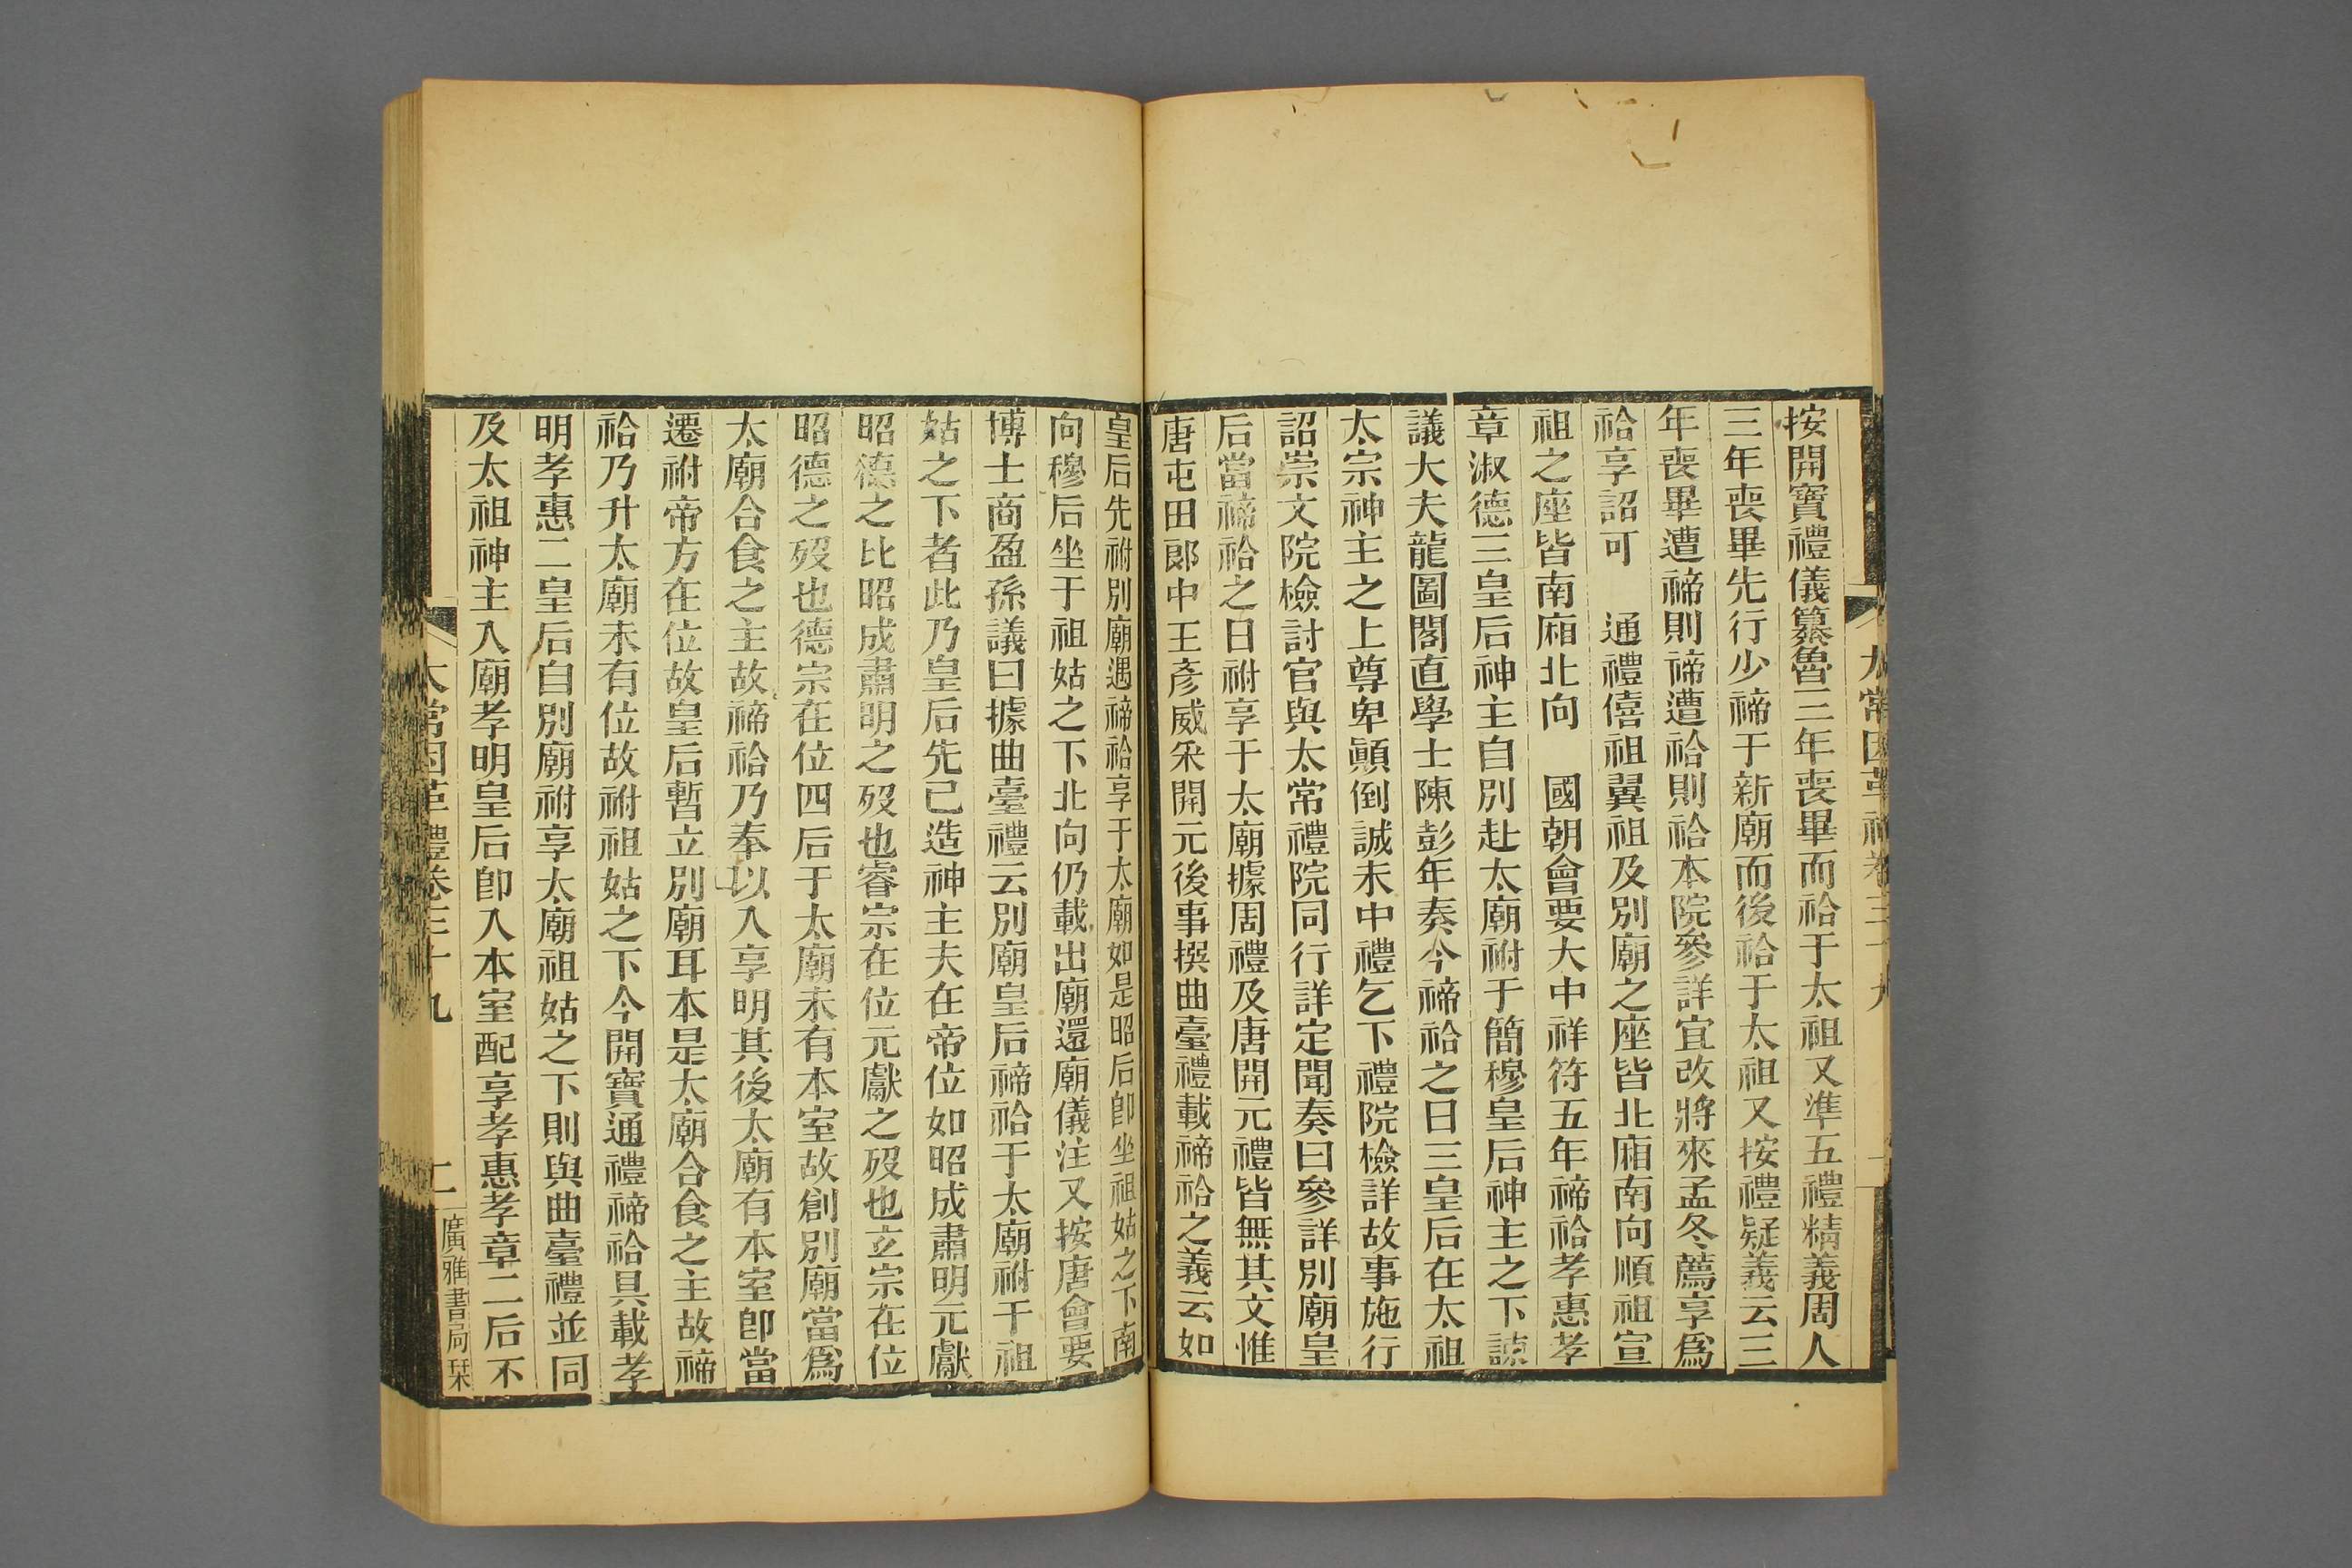 太常因革禮卷三十九
按開寶禮儀纂魯三年喪畢而祫于太祖又準五禮精義周人
三年喪畢先行少禘于新廟而後祫于太祖又按禮疑義云三
年喪畢遭禘則禘遭祫則祫本院參詳宜改將來孟冬薦享爲
祫享詔可　通禮僖祖翼祖及別廟之座皆北廂南向順祖宣
祖之座皆南廂北向　國朝會要大中祥符五年禘祫孝惠孝
章淑德三皇后神主自別赴太廟祔于簡穆皇后神主之下諫
議大夫龍圖閣直學士陳彭年奏今禘祫之日三皇后在太祖
太宗神主之上尊卑顚倒誠未中禮乞下禮院檢詳故事施行
詔崇文院檢討官與太常禮院同行詳定聞奏曰參詳別廟皇
后當禘祫之日祔享于太廟據周禮及唐開元禮皆無其文惟
唐屯田郞中王彥威采開元後事撰曲臺禮載禘祫之義云如
皇后先祔別廟遇禘祫享于太廟如是昭后卽坐祖姑之下南
向穆后坐于祖姑之下北向仍載出廟還廟儀注又按唐會要
博士商盈孫議曰據曲臺禮云別廟皇后禘祫于太廟祔于祖
姑之下者此乃皇后先已造神主夫在帝位如昭成肅明元獻
昭德之比昭成肅明之歿也睿宗在位元獻之歿也玄宗在位
昭德之歿也德宗在位四后于太廟未有本室故創別廟當爲
太廟合食之主故禘祫乃奉以入享明其後太廟有本室卽當
遷祔帝方在位故皇后暫立別廟耳本是太廟合食之主故禘
祫乃升太廟未有位故祔祖姑之下今開寶通禮禘祫具載孝
明孝惠二皇后自別廟祔享太廟祖姑之下則與曲臺禮並同
及太祖神主入廟孝明皇后卽入本室配享孝惠孝章二后不
太常因革禮卷三十九
二
廣雅書局栞